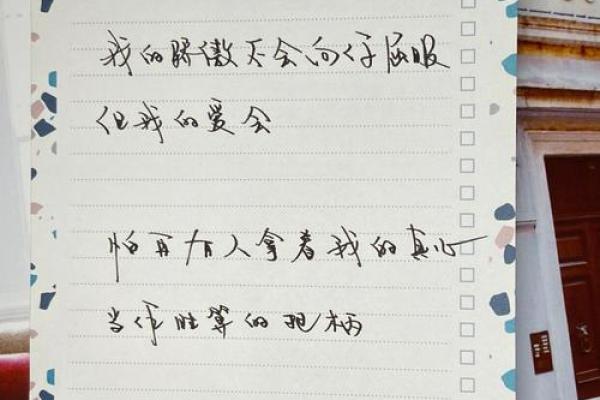 我的骄傲不会向任何屈服
但我的爱会
怕再有人拿着我的真心
当作胜算的把柄